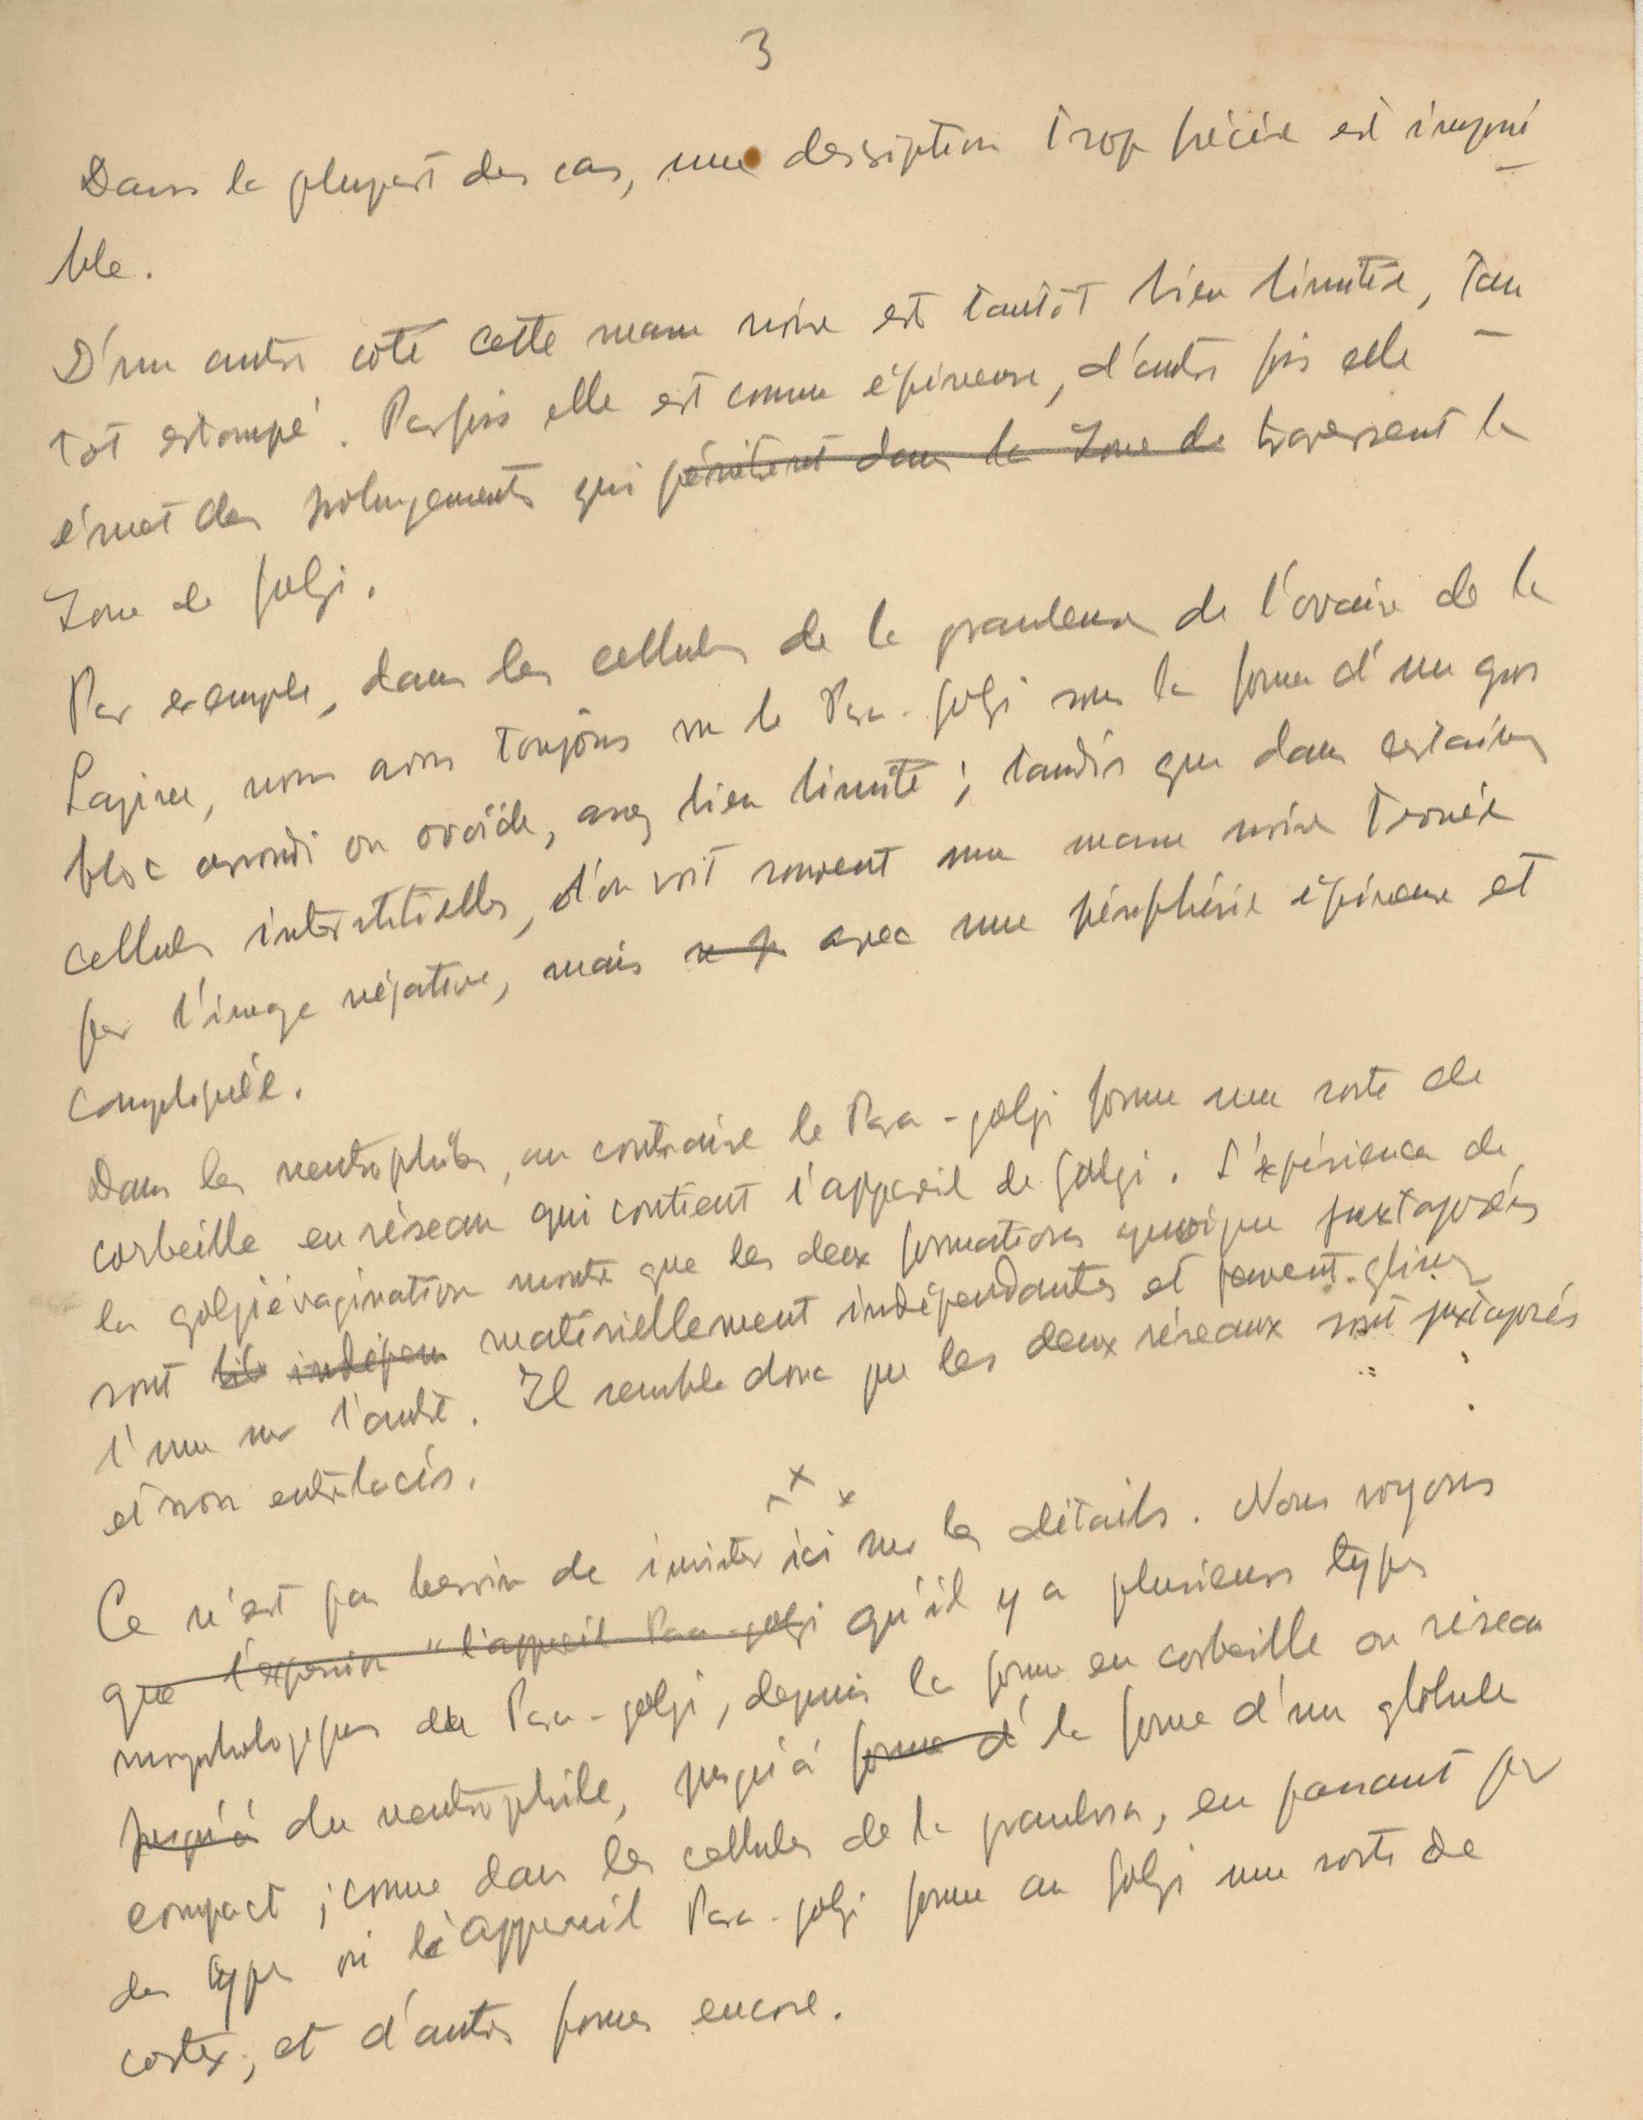 3
Dans la plupart des cas, une description trop précise est impossi
ble.
D'un autre coté cette masse noire est tantôt bien limitée, tan
tot estompé. Parfois elle est comme épineuse, d'autres fois elle
émet des prolongements qui pénètrent dans la zone de traversent la
Zone de Golgi.
Par exemple, dans les cellules de la granuleuse de l'ovaire de la
Lapine, nous avons toujours vu le Para-golgi sous la forme d'un gros
bloc arrondi ou ovoïde, assez bien limité; tandis que dans certaines
cellules interstitielles, l'on voit souvent une masse noire trouée
par l'image négative, mais avec une périphérie épineuse et
compliquée.
Dans les neutrophiles, au contraire le Para-golgi forme une sorte de
corbeille en réseau qui contient l'appareil de Golgi. L'expérience de
la golgiévagination montre que les deux formations quoique juxtaposées
sont indépen materiellement indépendantes et peuvent glisser
l'une sur l'autre. Il semble donc que les deux réseaux sont juxtaposés
et non entrelacés.
x x x
Ce n'est pas besoin de insister ici sur les détails. Nous voyons
que l'expression "l'appareil Para-golgi qu'il y a plusieurs types
morphologiques du Para-golgi, depuis la forme en corbeille ou réseau
jusqu'à du neutrophile, jusqu'à forme d' la forme d'un globule
compact; comme dans les cellules de la granulosa, en passant par
des types où l'appareil Para-golgi forme au Golgi une sorte de
cortex; et d'autres formes encore.